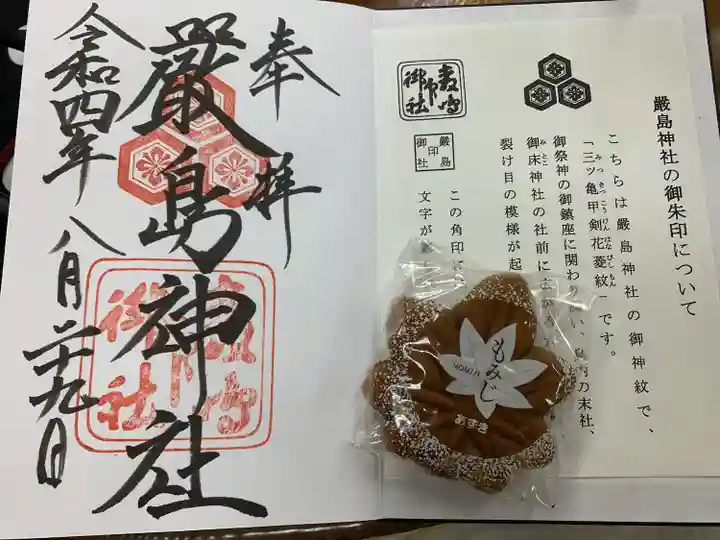 嚴島神社の御朱印について
こちらは嚴島神社の御神紋で、
「三ツ亀甲剣花菱紋」です。
みつきっこうけんはなびしもん
御祭神の御鎮座に関わり
の末社、
みとこ
御床神社の社前に広がる
裂け目の模様が起
この角印に
文字が
もみじ
MOMIJI
あずき
奉拝
嚴島神社
令和四年八月二十九日